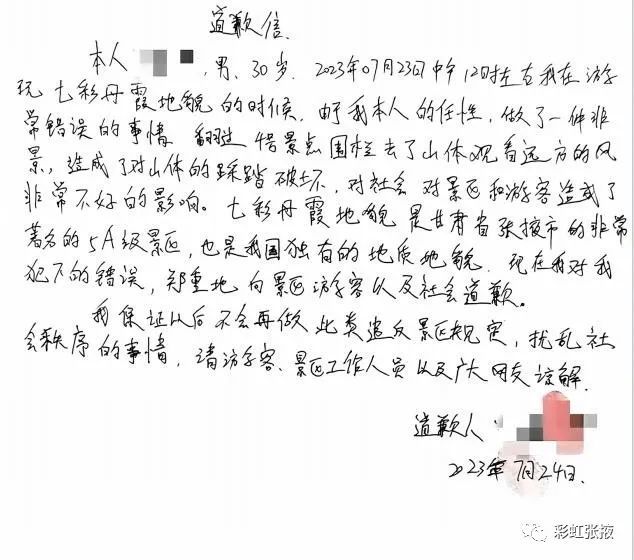 道歉信
本人 ，男，30岁，2023年07月23日中午12时左右我在游
玩七彩丹霞地貌的时候，由于我本人的任性，做了一件非
常错误的事情，翻过 景点围栏去了山体观看远方的风
景，造成了对山体的踩踏破坏，对社会对景区和游客造成了
非常不好的影响。七彩丹霞地貌是甘肃省张掖市的非常
著名的5A级景区，也是我国独有的地质地貌，现在我对我
犯下的错误，郑重地向景区游客以及社会道歉。
我保证以后不会再做此类违反景区规定，扰乱社
会秩序的事情，请游客、景区工作人员以及广大网友谅解。
道歉人：
2023年7月24日.
彩虹张掖